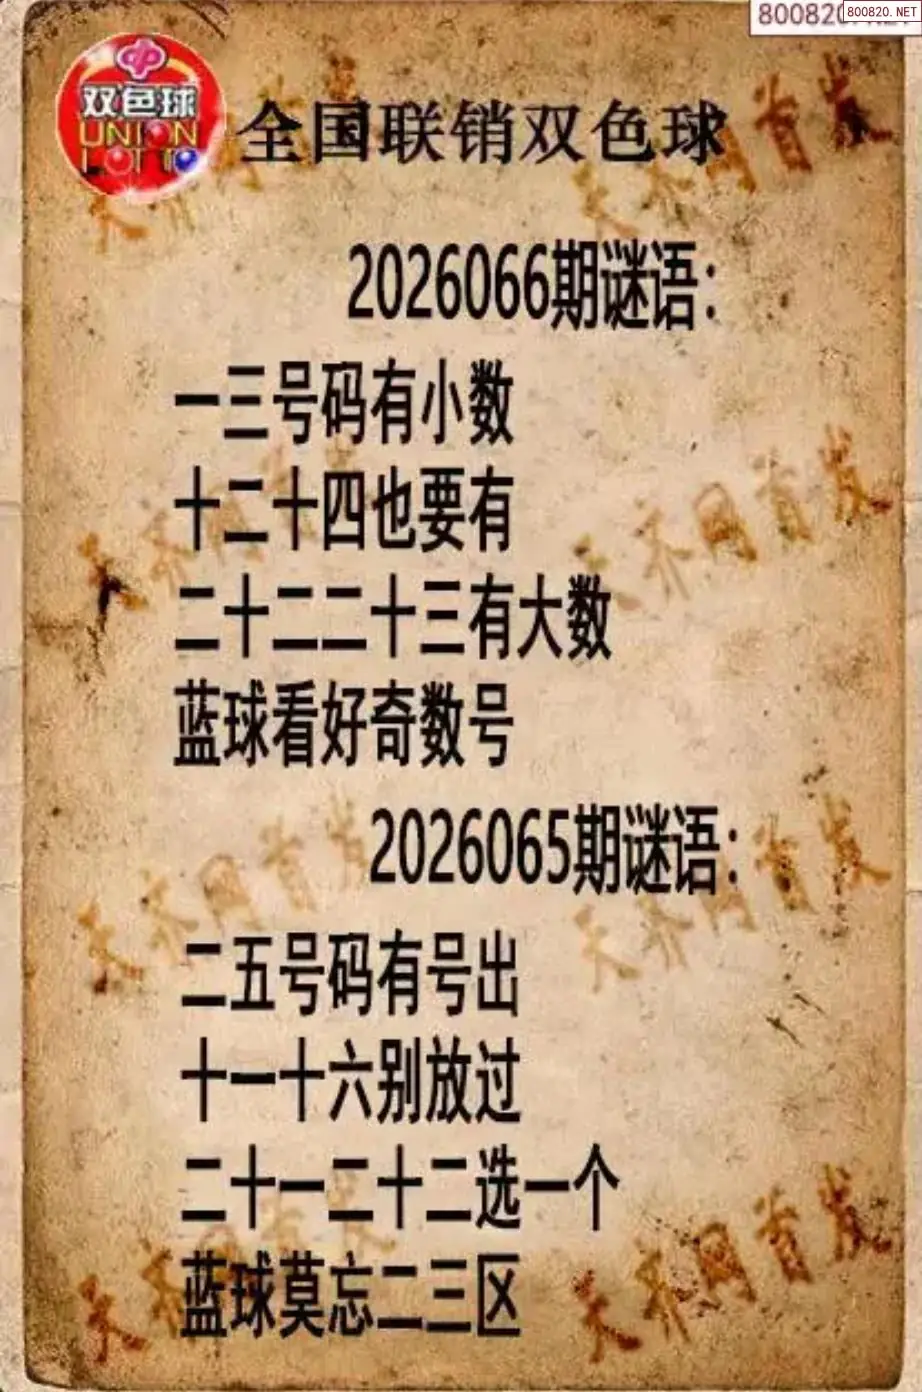 800820.NET
800820.NET
双色球
UNION
LOTTO
全国联销双色球
2026066期谜语：
一三号码有小数
十二十四也要有
二十二二十三有大数
蓝球看好奇数号
2026065期谜语：
二五号码有号出
十一十六别放过
二十一二十二选一个
蓝球莫忘二三区
天齐网首发
天齐网首发
天齐网首发
天齐网首发
天齐网首发
天齐网首发
天齐网首发
天齐网首发